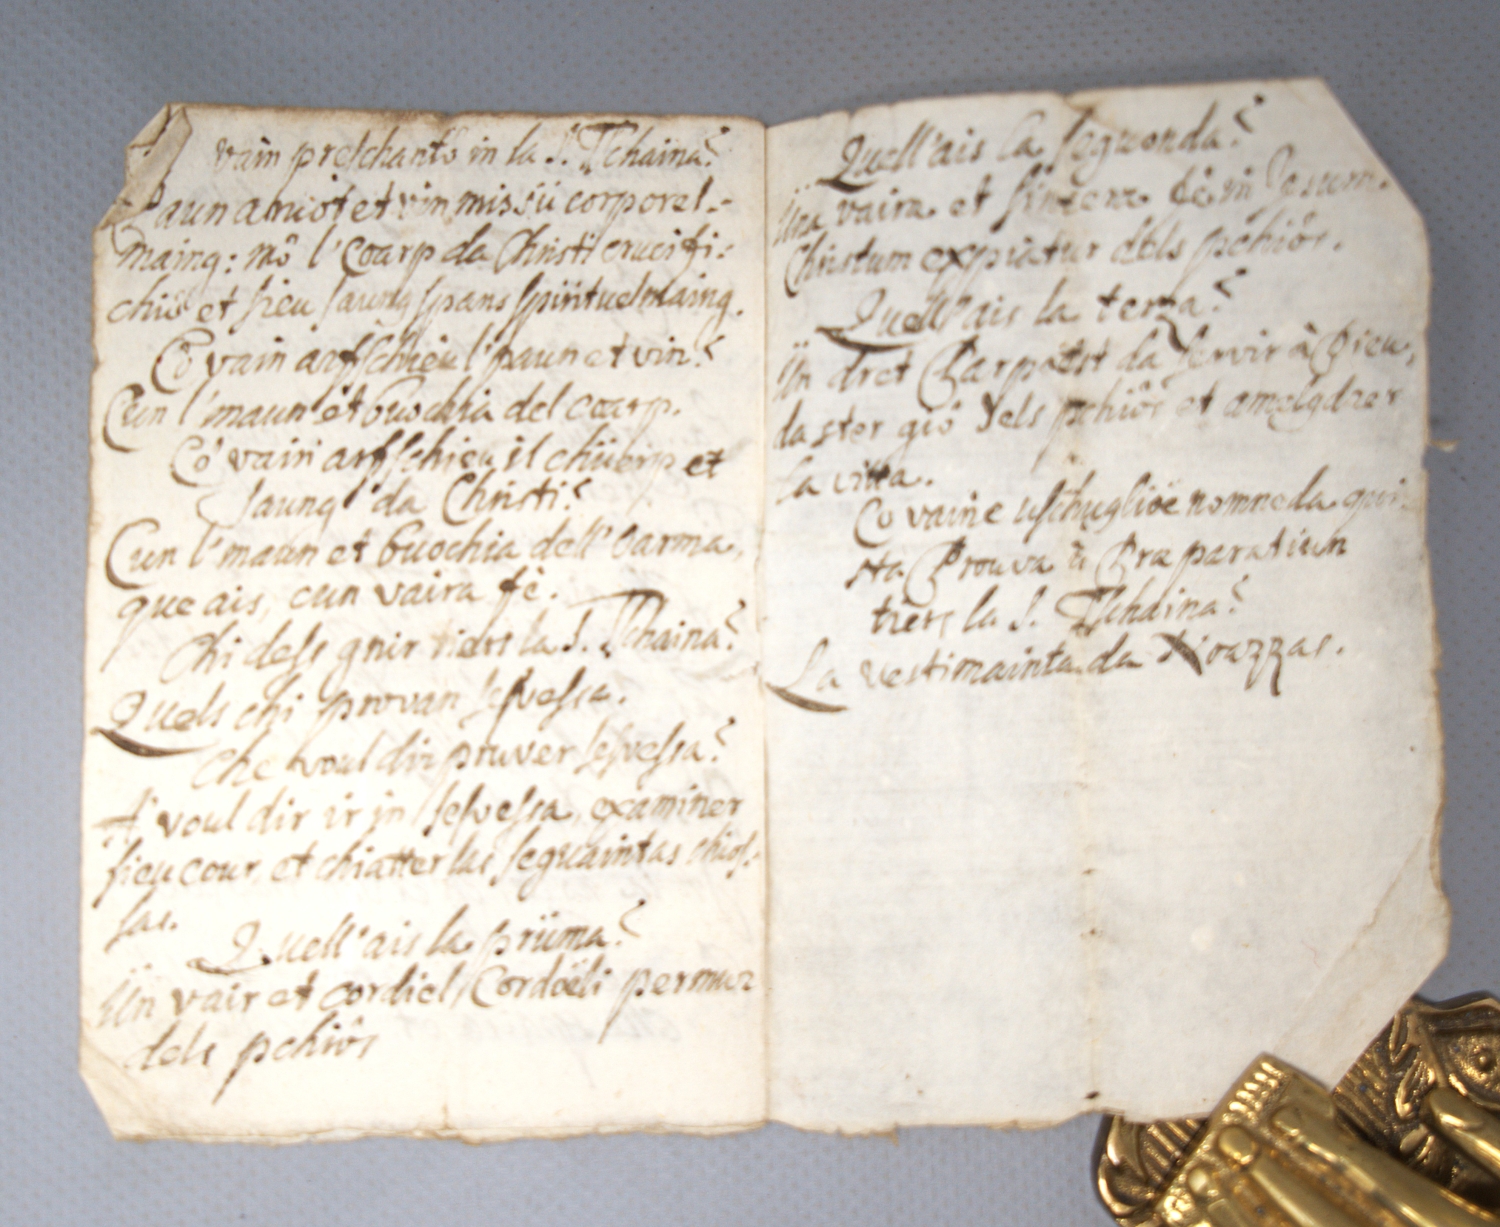 vain preschantô in la S. Tschaina?
Paun a miot et vin missü corporel-
maing: mô l' Coarp da Christi crucifi-
chiô et sieu saung spans spirituelmaing.
Cô vain arfschieu l' paun et vin?
Cun l' maun et buochia del coarp.
Cô vain arfschieu il chüerp et
saung da Christi?
Cun l' maun et buochia dell' Oarma,
que ais, cun vaira fè.
Chi dess gnir tiers la S. Tschaina?
Quels chi provan sesvessa.
Che voul dir pruver sesvessa?
A' voul dir ir in sesvessa, examiner
sieu cour, et chiatter las seguaintas chios-
sas.
Quell' ais la prüma?
Ün vair et cordiel Cordöli permur
dels pchiôs
Quell' ais la seguonda?
Üna vaira et sinzera fè in Jesum
Christum expiatur dels pchiôs.
Quell' ais la terza?
Ün dret Parpöest da servir à Dieu,
da ster giò dels pchiôs et amelgdrer
la vitta.
Co vain e uschugliöe nomneda qui-
sta Prouva ù Præparatiun
tiers la S. Tschaina?
La vestimainta da Noazzas.